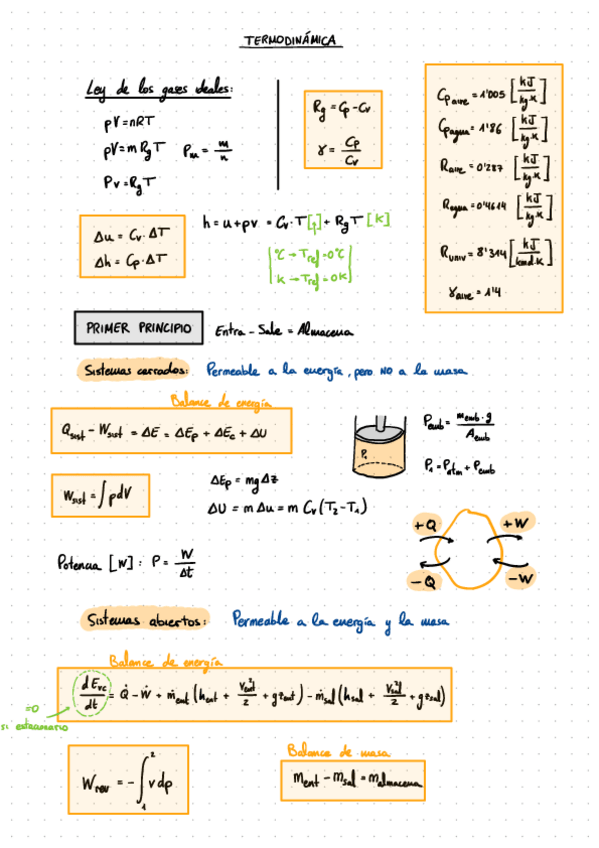 TERMODINÁMICA
Ley de los gases ideales:
pV = nRT
pV = m RgT   Pm = m/n
Pv = RgT
Rg = Cp - Cv
γ = Cp/Cv
Cp aire = 1'005 [kJ/kg K]
Cp agua = 1'86 [kJ/kg K]
Raire = 0'287 [kJ/kg K]
Ragua = 0'4614 [kJ/kg K]
Runiv = 8'314 [kJ/kmol K]
γaire = 1'4
Δu = Cv · ΔT
Δh = Cp · ΔT
h = u + pv = Cv · T[] + RgT [K]
°C → Tref = 0°C
K → Tref = 0K
PRIMER PRINCIPIO   Entra - Sale = Almacena
Sistemas cerrados: Permeable a la energía, pero NO a la masa
Balance de energía
Qsist - Wsist = ΔE = ΔEp + ΔEc + ΔU
Wsist = ∫ p dV
ΔEp = mgΔz
ΔU = m Δu = m Cv (T2 - T1)
P1
Pemb = memb · g / Aemb
P1 = Patm + Pemb
+Q   +W
-Q   -W
Potencia [W] : P = W/Δt
Sistemas abiertos: Permeable a la energía y la masa
Balance de energía
dEvc/dt = Q̇ - Ẇ + ṁent (hent + vent²/2 + gzent) - ṁsal (hsal + vsal²/2 + gzsal)
=0
si estacionario
Wrev = - ∫₁² v dp
Balance de masa
ment - msal = malmacena